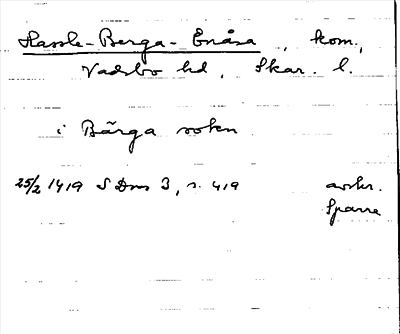 Hassle-Berga-Enåsa, kom.,
Vadsbo hd, Skar. l.
i Bärga sokn
25/2 1419 SDns 3, s. 419 avskr.
Sparre